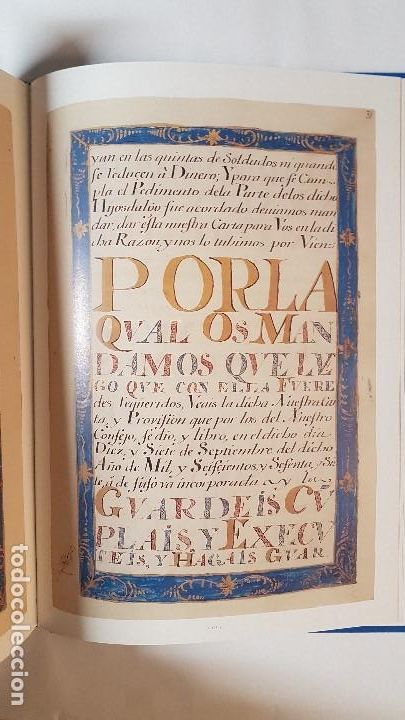 yan en las quintas de Soldados ni quando
se Reduçen â Dinero; Y para que se Cum=
pla el Pedimento dela Parte delos dichos
Hijosdalgo fue acordado deuiamos man
dar, dar esta nuestra Carta para Vos en la di
cha Razon, y nos lo tubimos por Vien=
POR LA
QVAL OS MAN
DAMOS QVE LE
GO QVE CON ELLA FVERE
des Requeridos, Veais la dicha Nuestra Car
ta, y Provision que por los del Nuestro
Consejo, se dio, y libro, en el dicho dia
Diez, y Siete de Septiembre del dicho
Año de Mil, y Seiscientos, y Sesenta, y Sie
te, â de suso vâ incorporada
GVARDEIS CV
PLAIS Y EXECV
TEIS, Y HAGAIS GVAR
todocoleccion.net